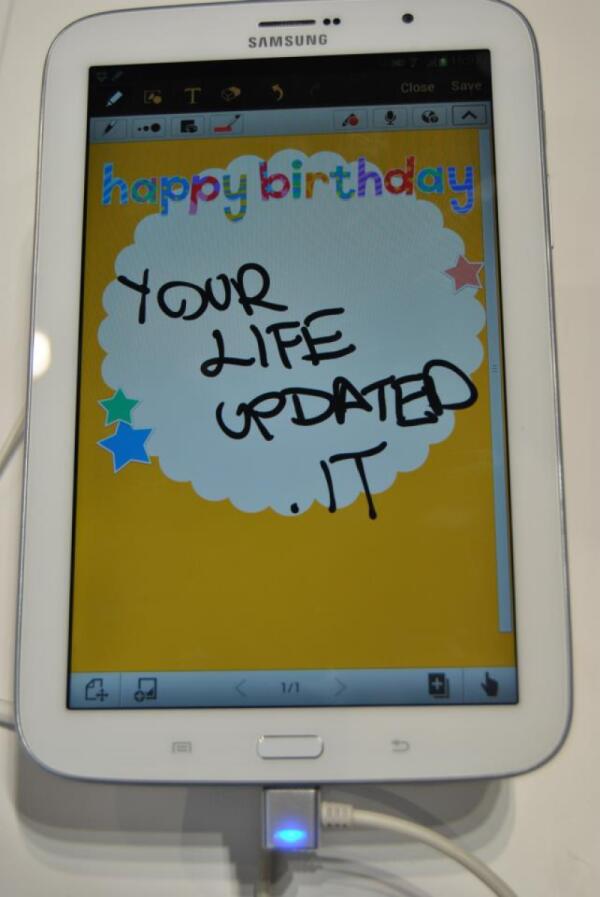 SAMSUNG
T
Close Save
happy birthday
YOUR
LIFE
UPDATED
.IT
1/1